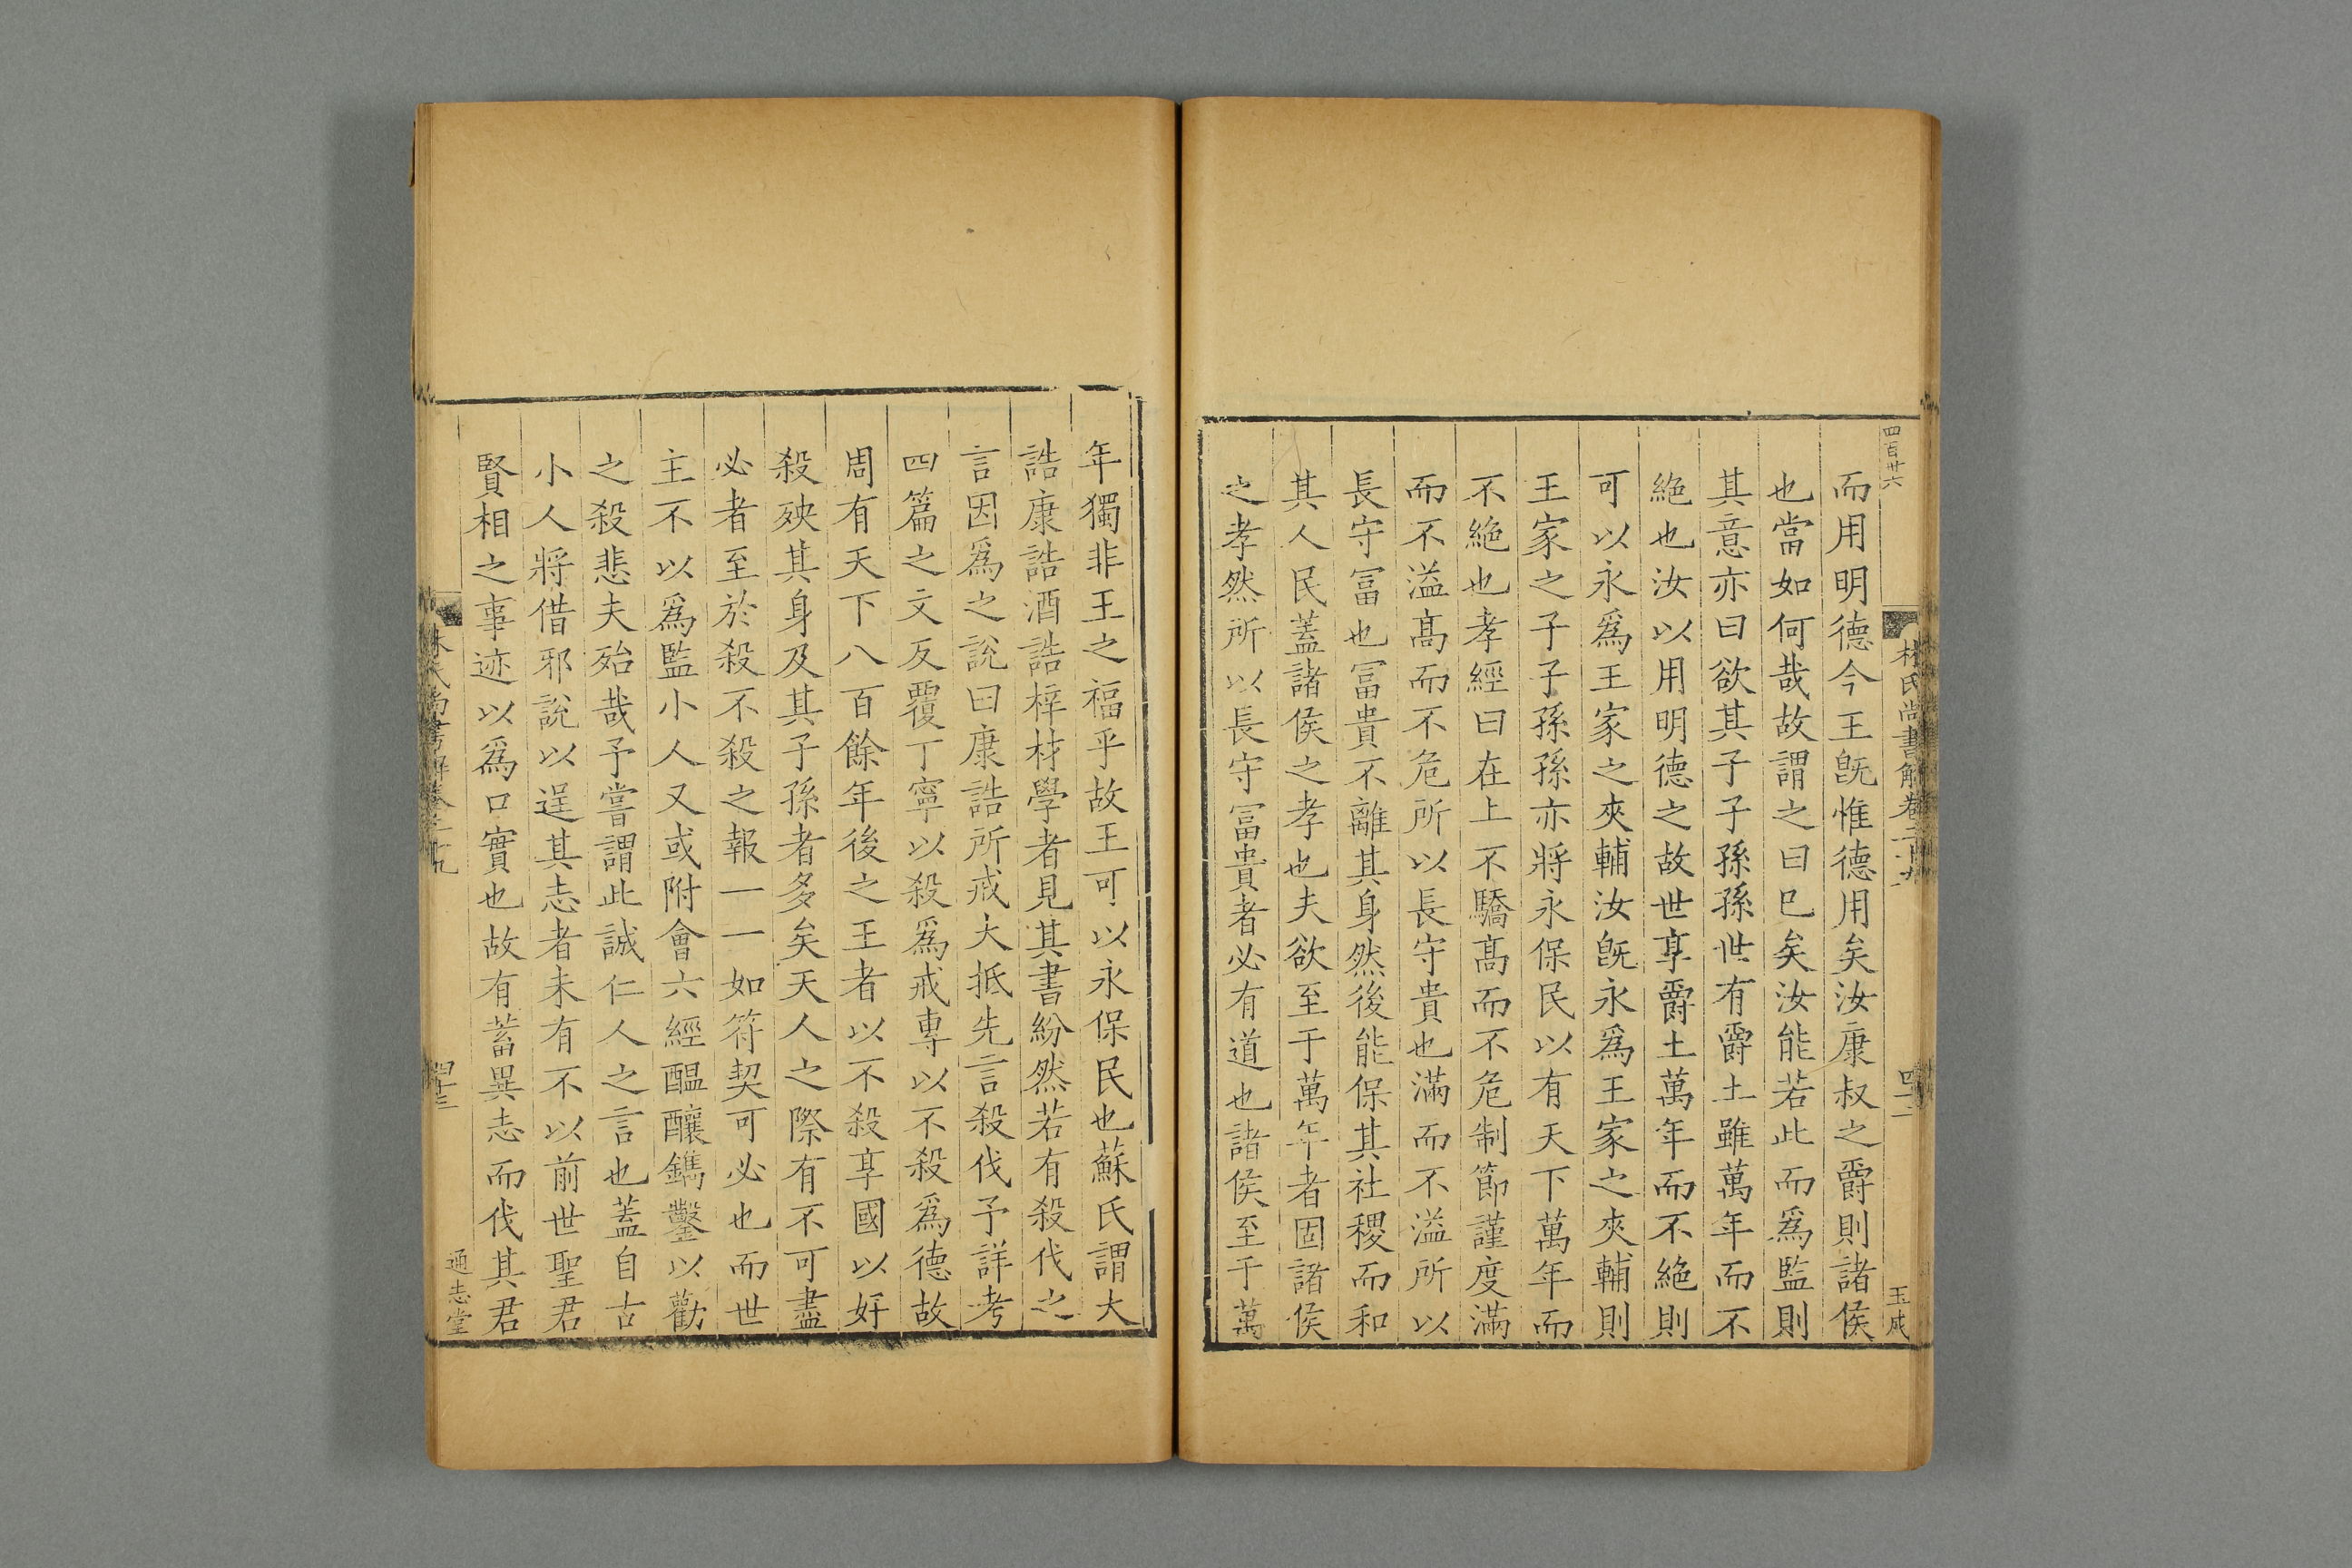 四百卅六
林氏尚書解卷二十九
四十二
玉成
而用明德今王旣惟德用矣汝康叔之爵則諸侯
也當如何哉故謂之曰巳矣汝能若此而爲監則
其意亦曰欲其子子孫孫世有爵土雖萬年而不
絶也汝以用明德之故世享爵土萬年而不絶則
可以永爲王家之夾輔汝旣永爲王家之夾輔則
王家之子子孫孫亦將永保民以有天下萬年而
不絶也孝經曰在上不驕髙而不危制節謹度滿
而不溢髙而不危所以長守貴也滿而不溢所以
長守冨也冨貴不離其身然後能保其社稷而和
其人民蓋諸侯之孝也夫欲至于萬年者固諸侯
之孝然所以長守冨貴者必有道也諸侯至于萬
年獨非王之福乎故王可以永保民也蘇氏謂大
誥康誥酒誥梓材學者見其書紛然若有殺伐之
言因爲之說曰康誥所戒大抵先言殺伐予詳考
四篇之文反覆丁寧以殺爲戒專以不殺爲德故
周有天下八百餘年後之王者以不殺享國以好
殺殃其身及其子孫者多矣天人之際有不可盡
必者至於殺不殺之報一一如符契可必也而世
主不以爲監小人又或附會六經醖釀鐫鑿以勸
之殺悲夫殆哉予嘗謂此誠仁人之言也蓋自古
小人將借邪說以逞其志者未有不以前世聖君
賢相之事迹以爲口實也故有蓄異志而伐其君
林氏尚書解卷二十九
四十三
通志堂